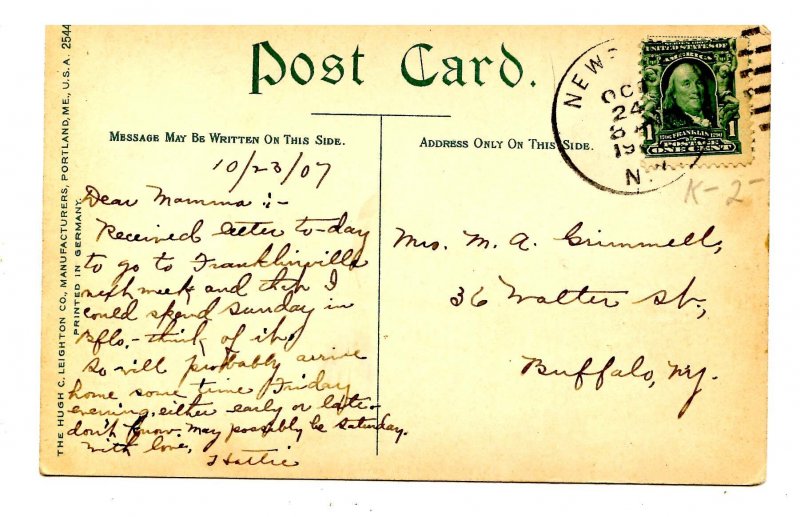 THE HUGH C. LEIGHTON CO., MANUFACTURERS, PORTLAND, ME., U.S.A. 2544
PRINTED IN GERMANY.
Post Card.
MESSAGE MAY BE WRITTEN ON THIS SIDE.
ADDRESS ONLY ON THIS SIDE.
10/23/07
Dear Mamma :-
Received letter to-day
to go to Franklinville
next week and then I
could spend Sunday in
Bflo. - think of it.
So will probably arrive
home some time Friday
evening, either early or late -
don't know. May possibly be Saturday.
With love,
Hattie
Mrs. M. A. Grimmell,
36 Walter St.,
Buffalo, Ny.
NEW
OCT
24
19
N.Y.
UNITED STATES OF
AMERICA
1 FRANKLIN 1
POSTAGE
ONE CENT
K-2-